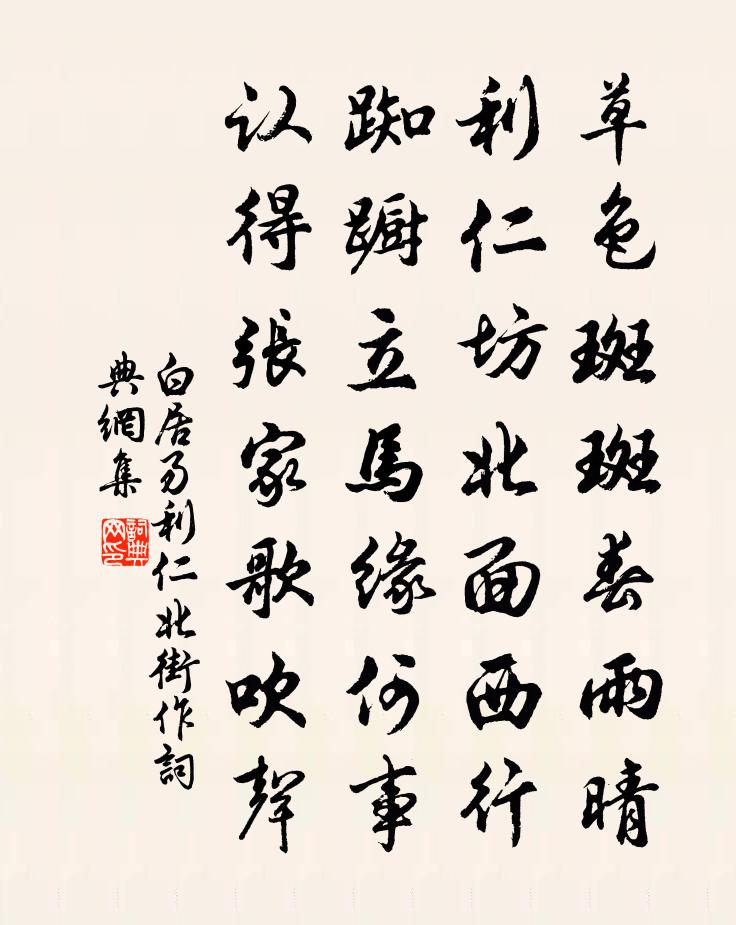 草色斑斑春雨晴
利仁坊北面西行
踟蹰立馬緣何事
认得張家歌吹聲
白居易利仁北街作詞
典網集
詞典
网印